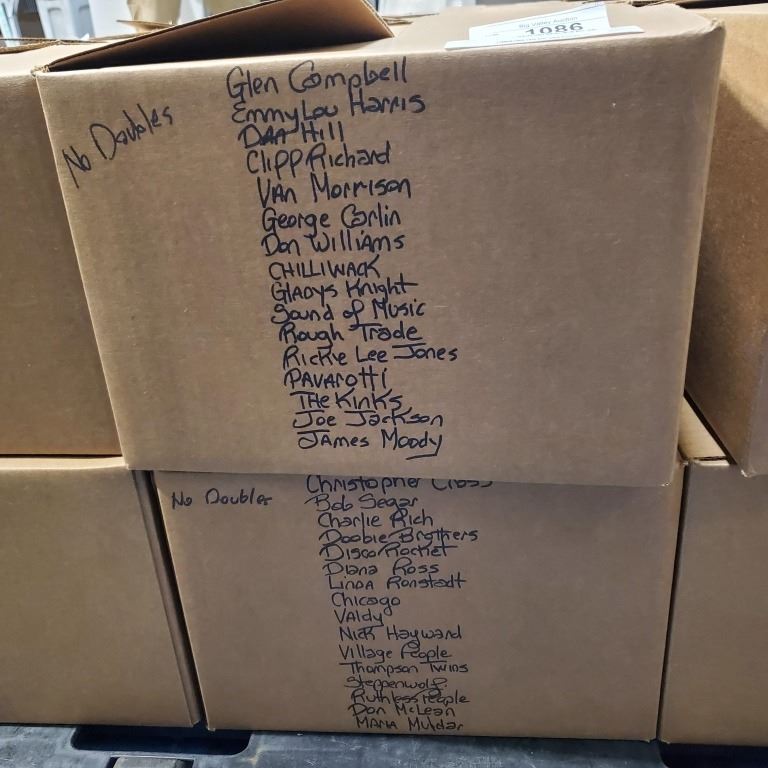 Big Valley Auction
1086
No Doubles
Glen Campbell
EmmyLou Harris
DAN Hill
Clipp Richard
VAN Morrison
George Carlin
Don Williams
CHILLIWACK
GLADYS Knight
Sound of Music
Rough Trade
Rickie Lee Jones
PAVArotti
THe Kinks
Joe Jackson
JAmes Moody
No Doubles
Christopher Cross
Bob Segar
Charlie Rich
Doobie Brothers
Disco Rocket
Diana Ross
LINDA Ronstadt
Chicago
VAldy
Nick Hayward
Village People
Thompson Twins
Steppenwolf
Ruthless People
Don McLean
MARIA Muldar